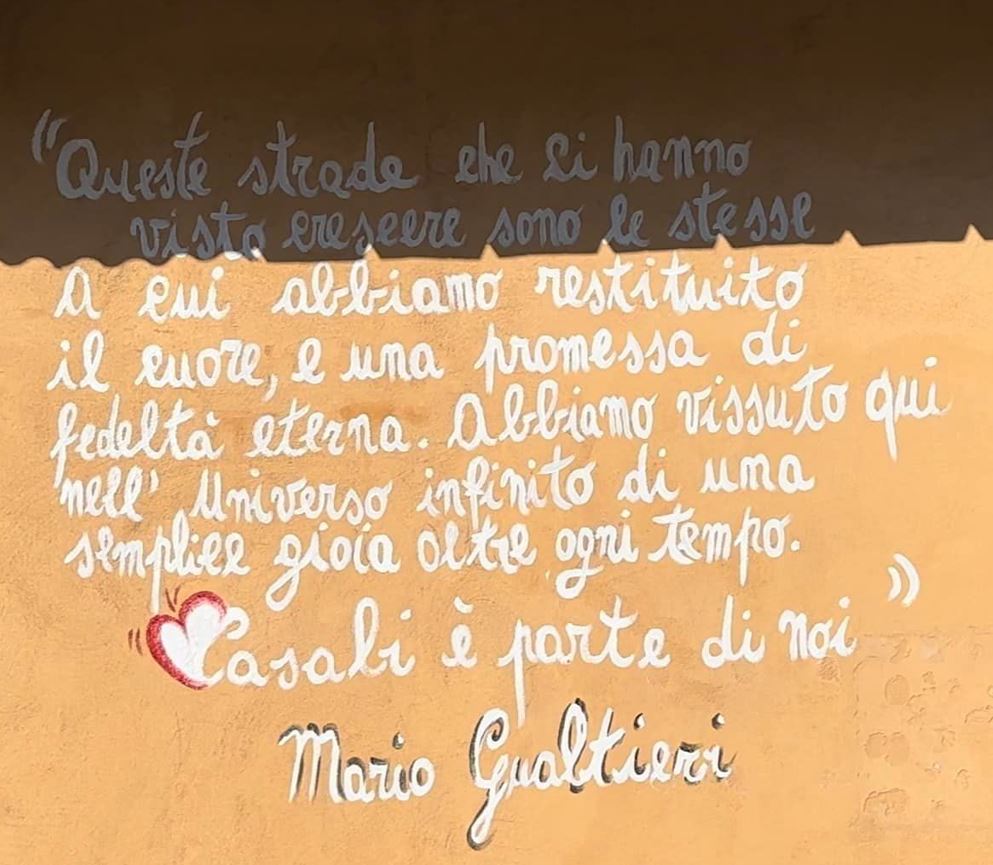 "Queste strade che ci hanno
visto crescere sono le stesse
a cui abbiamo restituito
il cuore, e una promessa di
fedeltà eterna. Abbiamo vissuto qui
nell' Universo infinito di una
semplice gioia oltre ogni tempo.
Casali è parte di noi"
Mario Gualtieri